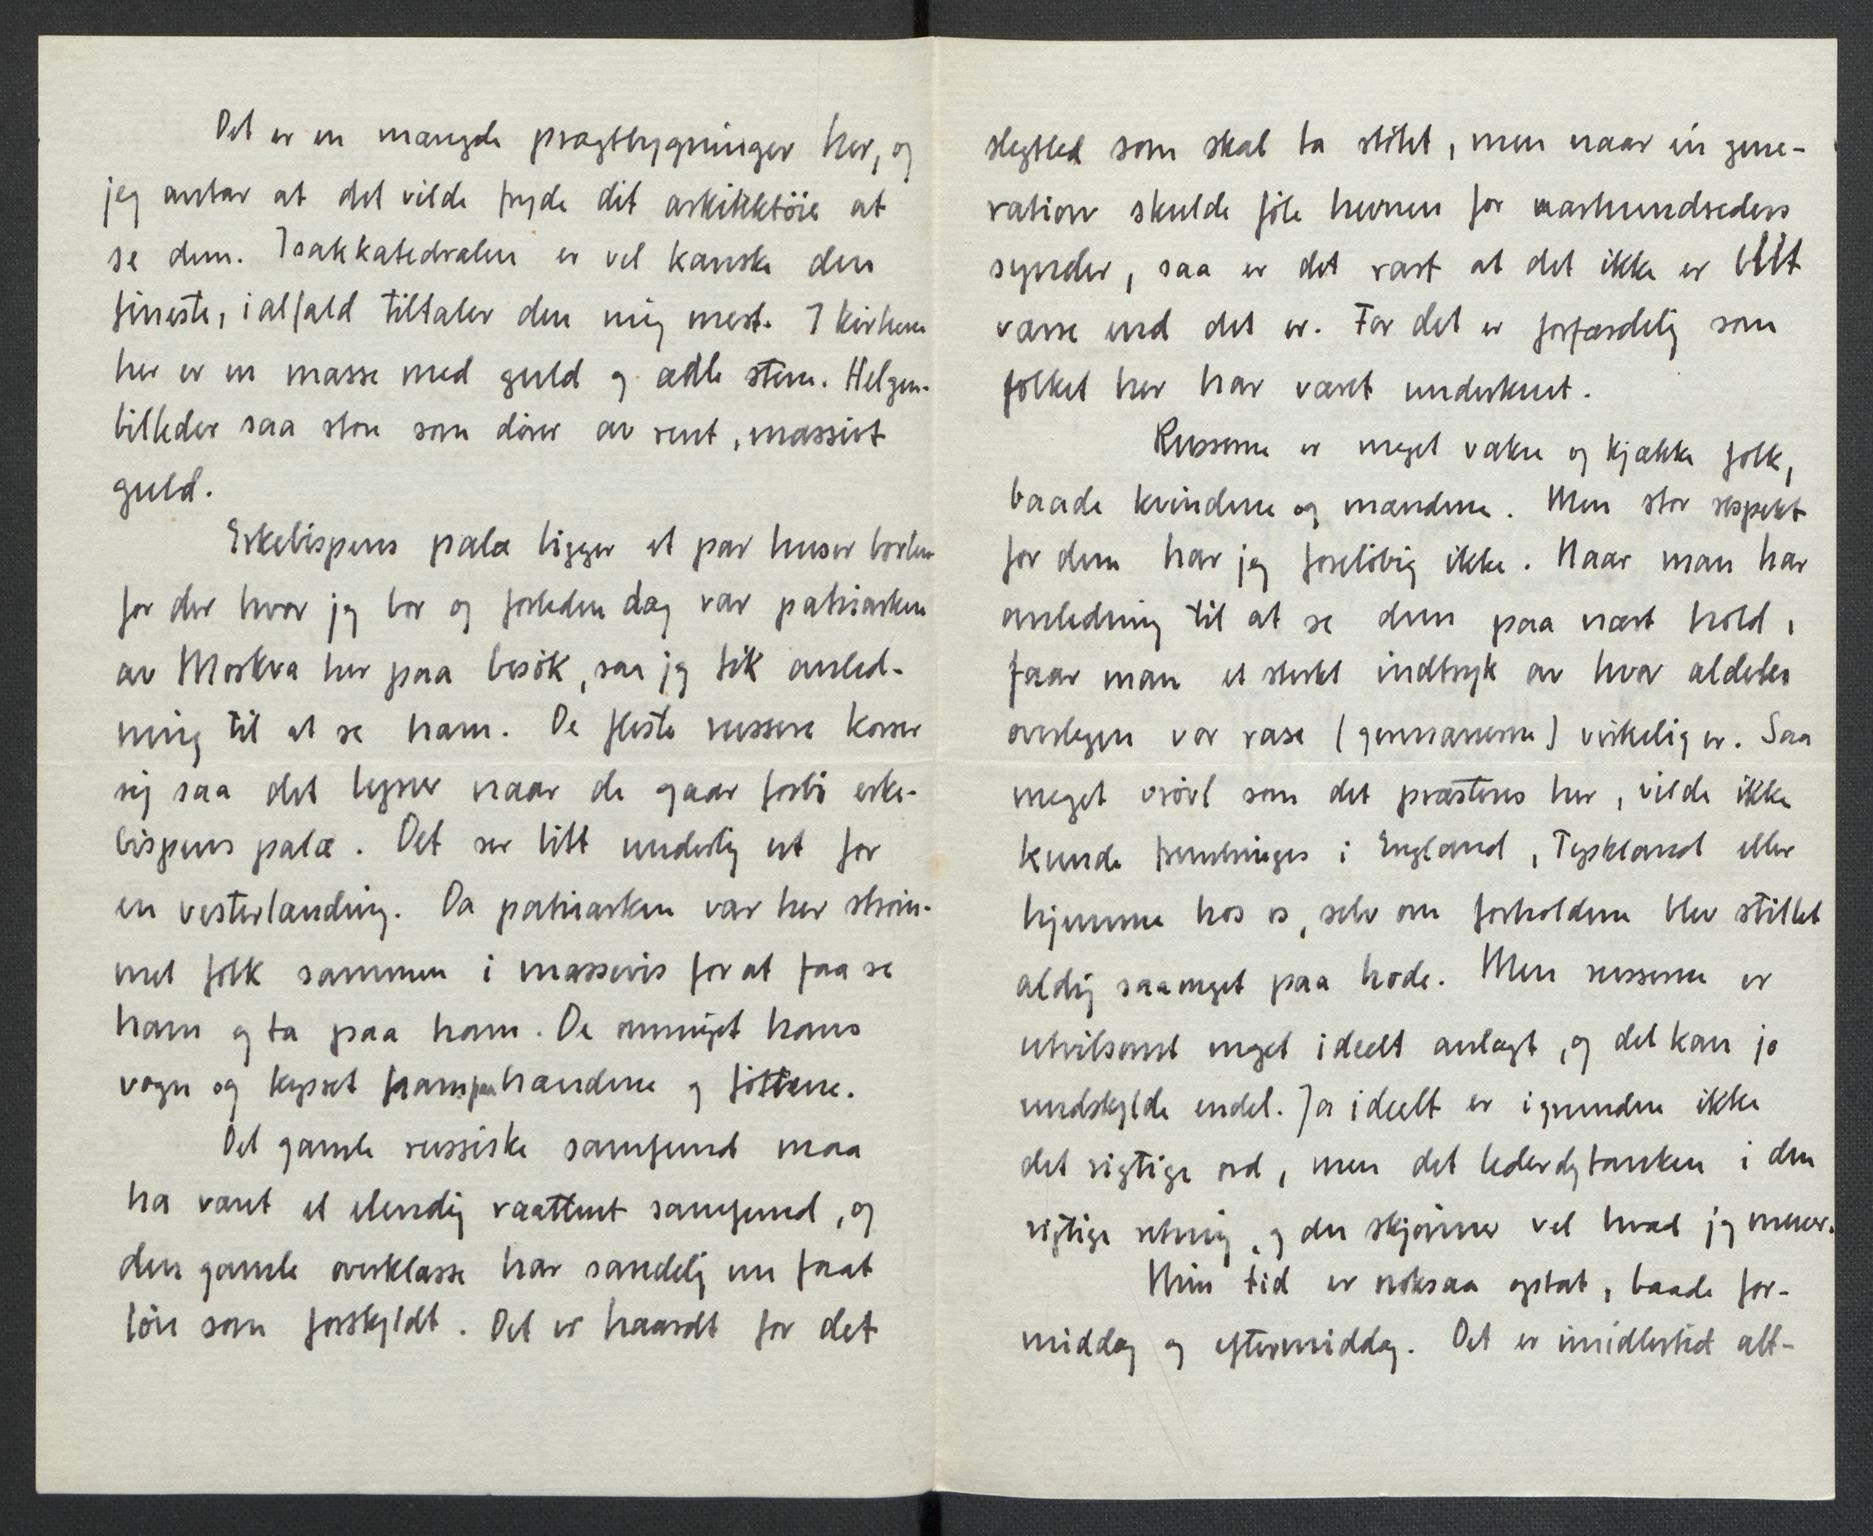 Det er en mængde pragtbygninger her, og
jeg antar at det vilde fryde dit arkitektöie at
se dem. Isakkatedralen er vel kanske den
fineste, ialfald tiltaler den mig mest. I kirkene
her er en masse med guld og ædle stene. Helgen-
billeder saa store som dörer av rent, massivt
guld.
Erkebispens palæ ligger et par huser borten-
for der hvor jeg bor og forleden dag var patriarken
av Moskva her paa besök, saa jeg fik anled-
ning til at se ham. De fleste russere korser
sig saa det lyser naar de gaar forbi erke-
bispens palæ. Det ser litt underlig ut for
en vesterlænding. Da patriarken var her ström-
met folk sammen i massevis for at faa se
ham og ta paa ham. De omringet hans
vogn og kysset ham paa hændene og föttene.
Det gamle russiske samfund maa
ha været et elendig raattent samfund, og
den gamle overklasse har sandelig nu faat
lön som forskyldt. Det er haardt for det
slegtled som skal ta stötet, men naar én gene-
ration skulde föle hevnen for aarhundreders
synder, saa er det rart at det ikke er blit
værre end det er. For det er forfærdelig som
folket her har været underkuet.
Russerne er meget vakre og kjække folk,
baade kvindene og mændene. Men stor respekt
for dem har jeg forelöbig ikke. Naar man har
anledning til at se dem paa nært hold,
faar man et sterkt indtryk av hvor aldeles
overlegen vor rase (germanerne) virkelig er. Saa
meget vrövl som det præsteres her, vilde ikke
kunde frembringes i England, Tyskland eller
hjemme hos os, selv om forholdene blev stillet
aldrig saa meget paa hode. Men russerne er
utvilsomt meget ideelt anlagt, og det kan jo
undskylde endel. Ja ideelt er igrunden ikke
det rigtige ord, men det leder dog tanken i den
rigtige retning, og du skjönner vel hvad jeg mener.
Min tid er noksaa optat, baade for-
middag og eftermiddag. Det er imidlertid alt-